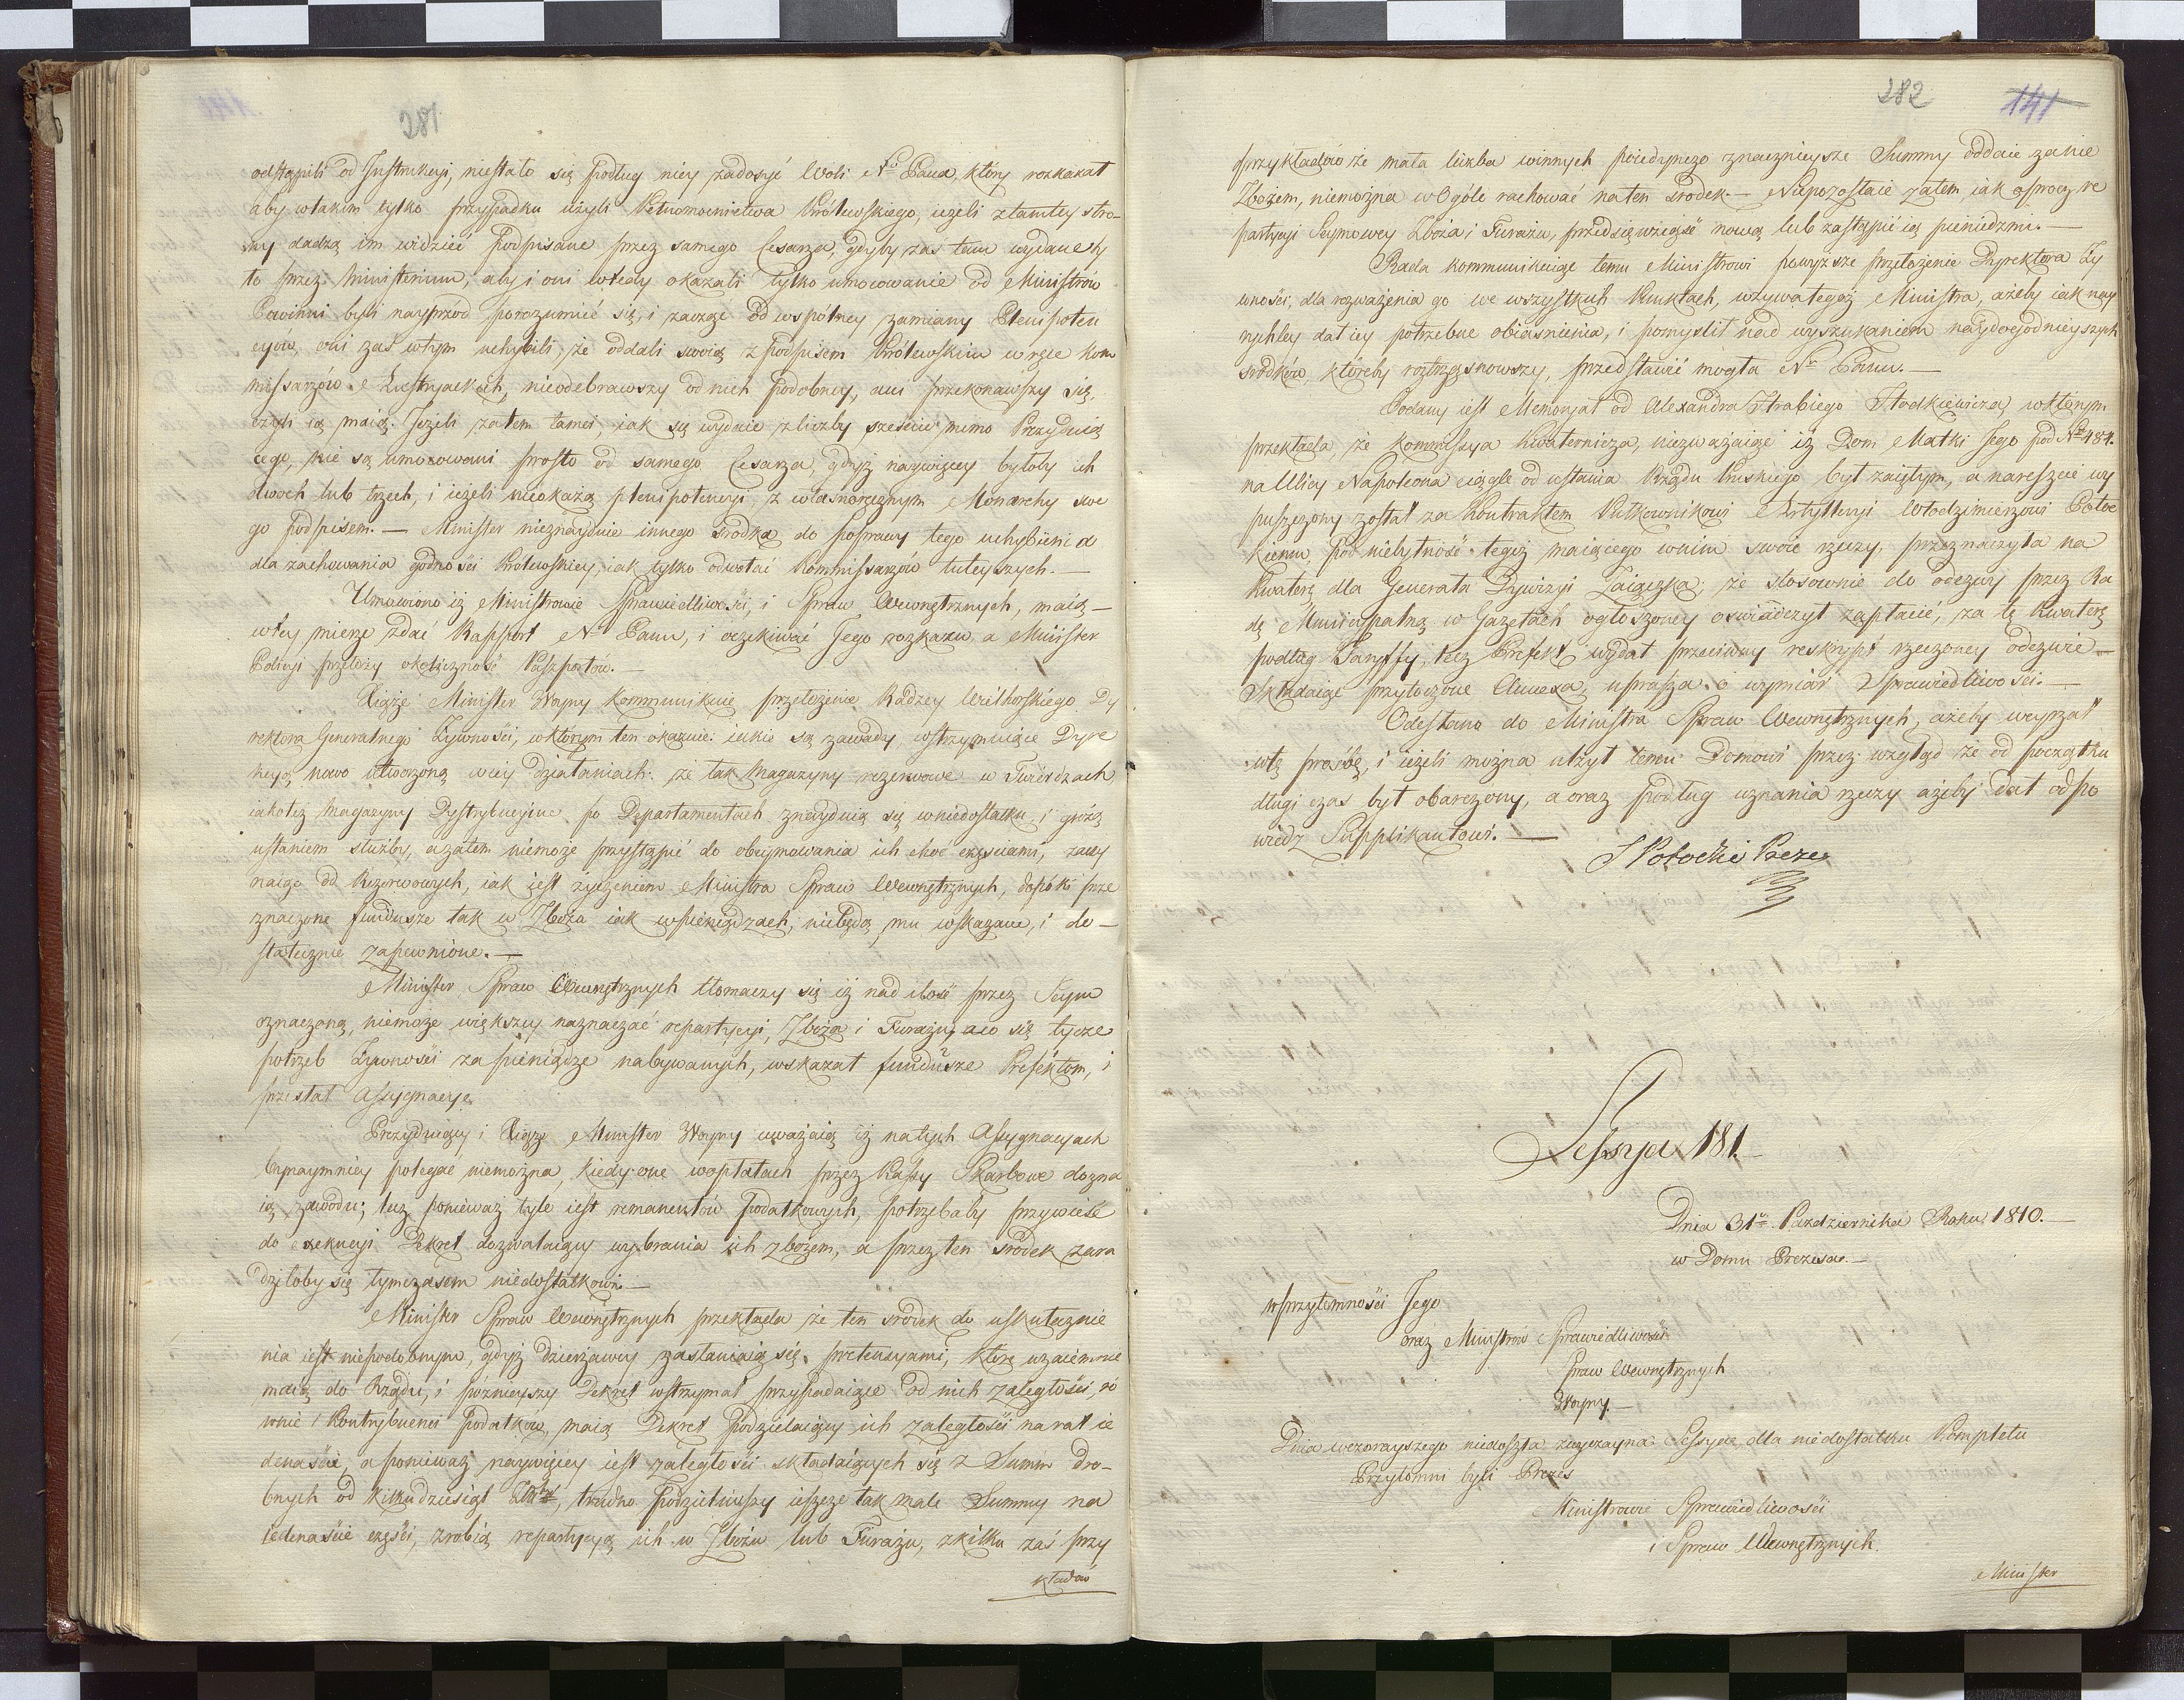 281
odstąpili od Instrukcyi, niestało się podług niey zadosyć Woli No Pana, który rozkazał
aby wtakim tylko przypadku użyli Pełnomocnictwa Królewskiego, ieżeli ztamtey stro-
ny dadzą im widzieć podpisane przez samego Cesarza, gdyby zas tam wydane by
to przez Ministerium, aby i oni wtedy okazali tylko umocowanie od Ministrów
Powinni byli nayprzód porozumieć się, i zacząć od wspólney zamiany Plenipoten
cyów, oni zaś wtym uchybili, że oddali swoią z podpisem Królewskim w ręce Kom
missarzów Austryackich, nieodebrawszy od nich podobney, ani przekonawszy się,
czyli ią maią. Jeżeli zatem tamci, iak się wydaie zliczby sześciu mimo Prezyduią
cego, nie są umocowani prosto od samego Cesarza, gdyż naywięcey byłoby ich
dwoch lub trzech, i ieżeli nieokażą plenipotencyi z własnoręcznym Monarchy swe
go podpisem. — Minister nieznayduie innego środka do poprawy tego uchybienia
dla zachowania godności Królewskiey, iak tylko odwołać Kommissarzów tuteyszych. —
Umowiono iż Ministrowie Sprawiedliwości, i Spraw Wewnętrznych, maią —
wtey mierze zdać Rapport No Panu, i oczekiwać Jego rozkazu, a Minister
Policyi przełoży okoliczność Paszportów. —
Xiąże Minister Woyny kommunikuie przełożenie Radzcy Wielhorskiego Dy
rektora Generalnego Żywności, wktorym ten okazuie: iakie są zawady, wstrzymuiące Dyre
kcyą nowo utworzoną wiey działaniach: że tak Magazyny rezerwowe w Twierdzach
iakoteż Magazyny Dystrybucyine po Departamentach znayduią się wniedostatku, i grożą
ustaniem służby, azatem niemoże przystąpić do obeymowania ich choć częściami, zaczy
naiąc od Rezerwowych, iak iest życzeniem Ministra Spraw Wewnętrznych, dopóki prze
znaczone fundusze tak w Zboża iak wpieniądzach, niebędą mu wskazane, i do —
statecznie zapewnione. —
Minister Spraw Wewnętrznych tłomaczy się iż nad ilość przez Seym
oznaczoną, niemoże większey naznaczać repartycyi, Zboża i Furażu, aco się tycze
potrzeb Żywności za pieniądze nabywanych, wskazał fundusze Prefektom, i
przesłał Assygnacye.
Prezyduiący i Xiąże Minister Woyny uważaią iż natych Assygnacyach
bynaymniey polegać niemożna, kiedy one wopłatach przez Kassy Skarbowe dozna
ią zawodu; lecz ponieważ tyle iest remanentów podatkowych, potrzebaby przywieść
do exekucyi Dekret dozwalaiący wybrania ich zbożem, a przez ten środek zara
dziłoby się tymczasem niedostatkowi. —
Minister Spraw Wewnętrznych przekłada że ten srodek do uskutecznie
nia iest niepodobnym, gdyż dzierżawcy zasłaniaią się pretensyami, które wzaiemne
maią do Rządu, i poźnieyszy Dekret wstrzymał przypadaiące od nich zaległości, ró
wnie i Kontrybuenci podatków, maią Dekret podzielaiący ich zaległości na rat ie
denaście, a ponieważ naywięcey iest zaległości składaiących się z Summ dro-
bnych od kilkudziesiąt Złotych, trudno podzieliwszy ieszcze tak małe Summy na
iedenaście części, zrobić repartycyą ich w Zbożu lub Furażu, zkilku zaś przy
kładów
282
141
przykładów że mała liczba winnych poiedynczo znacznieysze Summy oddaie zanie
Zbożem, niemożna wOgóle rachować na ten srodek. — Niepozostaie zatem, iak oprocz re
partycyi Seymowey Zboża i Furażu, przedsięwziąść nową lub zastąpić ią pieniedzmi. —
Rada kommunikuiąc temu Ministrowi powyższe przełożenie Dyrektora Ży
wności, dla rozważenia go we wszystkich Punktach, wzywa tegoż Ministra, ażeby iak nay
rychley dał iey potrzebne obiasnienia, i pomyslił nad wyszukaniem naydogodnieyszych
srodków, któreby roztrząsnowszy, przedstawić mogła No Panu. —
Podany iest Memoryał od Alexandra Hrabiego Chodkiewicza, wktórym
przekłada, że Kommissya Kwaternicza, niezważaiąc iż Dom Matki Jego pod No 484.
na Ulicy Napoleona ciągle od ustania Rządu Pruskiego był zaiętym, a nareszcie wy
puszczony został za Kontraktem Pułkownikowi Artylleryi Włodzimierzowi Potoc
kiemu, pod niebytność tegoż, maiącego wnim swoie rzeczy, przeznaczyła na
Kwaterę dla Generała Dywizyi Zaiączka; że stosownie do odezwy przez Ra
dę Municypalną w Gazetach ogłoszoney oświadczył zapłacić, za tę Kwaterę
podług Taryffy, lecz Prefekt wydał przeciwny reskrypt rzeczoney odezwie —
Składaiąc przyłączone Annexa, uprasza o wymiar Sprawiedliwości. —
Odesłano do Ministra Spraw Wewnętrznych, ażeby weyrzał
wtę prośbę, i ieżeli można ulżył temu Domowi przez wzgląd że od początku
długi czas był obarczony, a oraz podług uznania rzeczy ażeby dał odpo
wiedz Supplikantowi. —
S Potocki Prezes
Sessya 181. —
Dnia 31go Pazdziernika Roku 1810. —
w Domu Prezesa. —
wprzytomności Jego
oraz Ministrów Sprawiedliwości
Spraw Wewnętrznych
Woyny. —
Dnia wczorayszego niedoszła zwyczayna Sessya, dla niedostatku Kompletu
Przytomni byli Prezes
Ministrowie Sprawiedliwości
i Spraw Wewnętrznych.
Minister